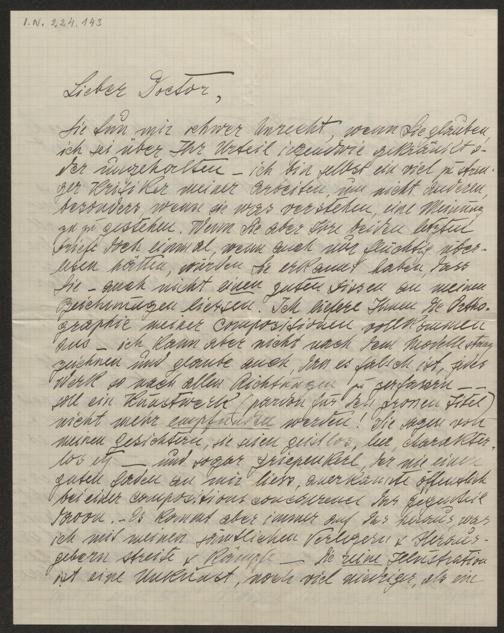 I.N. 224.143
Lieber Doctor,
Sie tun mir schwer Unrecht, wenn Sie glauben
ich sei über Ihr Urteil irgendwie gekränkt o-
der ungehalten – ich bin selbst ein viel zu stren-
ger Kritiker meiner Arbeiten, um nicht anderen,
besonders wenn sie was verstehen, eine Meinung
zu gestehen. Wenn Sie aber Ihre beiden
Briefe doch einmal, wenn auch nur flüchtig über-
lesen hätten, würden Sie erkannt haben dass
Sie – auch nicht einen guten Fissen an meinen
Zeichnungen liessen. Ich liefere Ihnen die Ortho-
graphie meiner Compositionen vollkommen
aus – ich kann aber nicht nach dem Modelle
zeichnen und glaube auch, dass es falsch ist, jedes
Werk so nach allen Richtungen zu – –
soll ein Kunstwerk (pardon für den grossen Titel)
nicht mehr empfunden werden! Sie sagen von
meinen Gesichtern, sie seien geistlos, leer charakter-
los etz – und sogar Griepenkerl, der nie einen
guten Faden an mir liess, anerkannte öffentlich
bei einer Compositionsconcurrenz das Gegenteil
davon. – Es kommt aber immer auf das heraus was
ich mit meinen sämtlichen Verlegern & Heraus-
gebern streite & kämpfe – Die reine Illustration
ist eine Unkunst, noch viel niedriger, als die